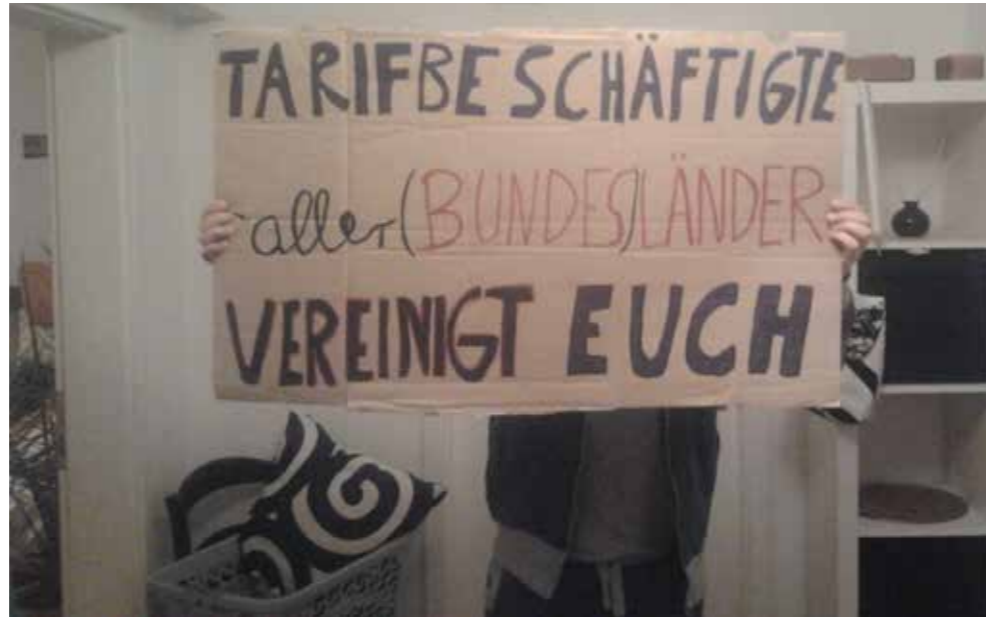 TARIFBESCHÄFTIGTE
aller (BUNDES)LÄNDER
VEREINIGT EUCH